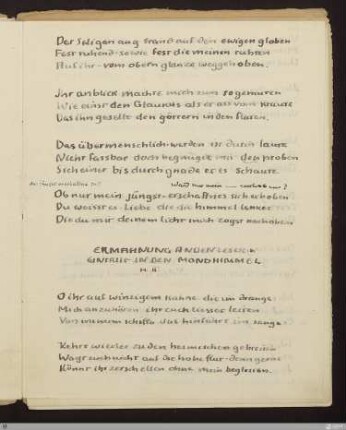 Der Seligen aug stand auf den ewigen globen
Fest ruhend · sowie fest die meinen ruhten
Auf ihr · vom obern glanze weggehoben.
Ihr anblick machte mich zum so gemuten
Wie einst den Glaukus als er ass vom kraute
Das ihn geselte den göttern in den fluten.
Das übermenschlich-werden ist durch laute
Nicht fassbar doch begnüge mit den proben
Sich einer bis durch gnade er es schaute.
Ob nur mein jüngst-erschaffnes sich erhoben
Du weisst es · Liebe die die himmel lenket
Die du mit deinem licht mich zogst nach oben
ERMAHNUNG AN DEN LESER ·
EINTRITT IN DEN MONDHIMMEL
II
O ihr auf winzigem kahne die im drange
Mich anzuhören ihr euch lasset leiten
Von meinem schiffe das hinfährt im sange:
Kehrt wieder zu den heimischen gebreiten
Wagt euch nicht auf die hohe flut · denn gerne
Könnt ihr zerschellen ohne mein begleiten.